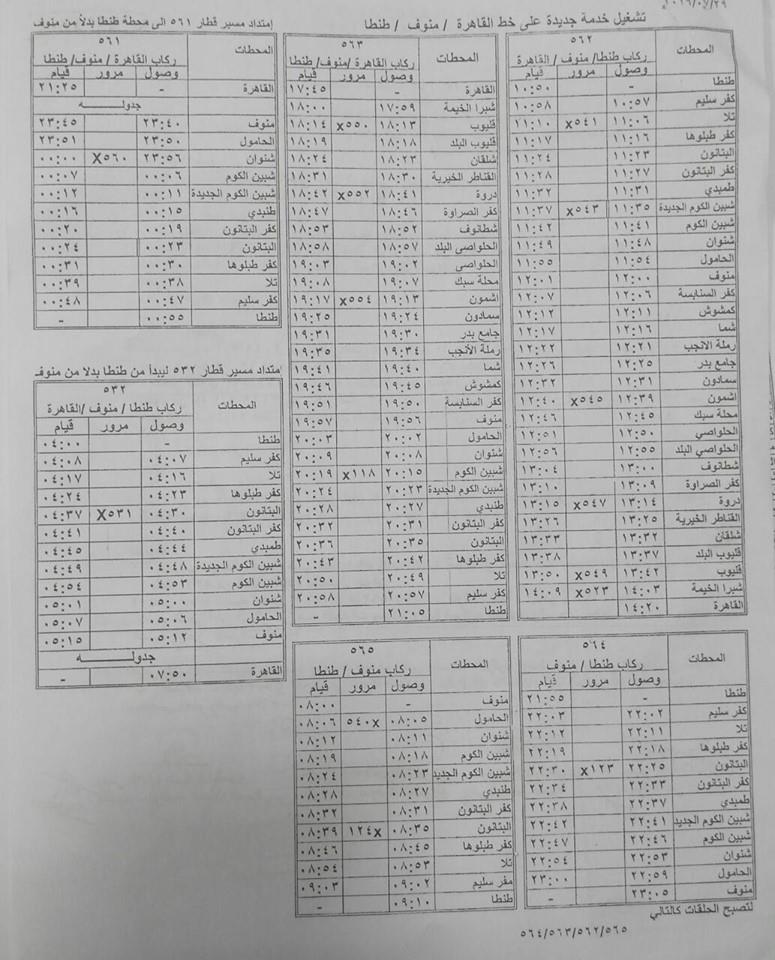 تشغيل خدمة جديدة على خط القاهرة / منوف / طنطا
المحطات ٥٦٢
ركاب طنطا/ منوف / القاهرة
وصول مرور قيام
طنطا - ١٠:٥٠
كفر سليم ١٠:٥٧ ١٠:٥٨
تلا ١١:٠٦ x٥٤١ ١١:١٠
كفر طبلوها ١١:١٦ ١١:١٧
البتانون ١١:٢٣ ١١:٢٤
كفر البتانون ١١:٢٧ ١١:٢٨
طمبدي ١١:٣١ ١١:٣٢
شبين الكوم الجديدة ١١:٣٥ x٥٤٣ ١١:٣٧
شبين الكوم ١١:٤١ ١١:٤٢
شنوان ١١:٤٨ ١١:٤٩
الحامول ١١:٥٤ ١١:٥٥
منوف ١٢:٠٠ ١٢:٠١
كفر السنابسة ١٢:٠٦ ١٢:٠٧
كمشوش ١٢:١١ ١٢:١٢
شما ١٢:١٦ ١٢:١٧
رملة الأنجب ١٢:٢١ ١٢:٢٢
جامع بدر ١٢:٢٥ ١٢:٢٦
سمادون ١٢:٣١ ١٢:٣٢
اشمون ١٢:٣٩ x٥٤٥ ١٢:٤٠
محلة سبك ١٢:٤٥ ١٢:٤٦
الحلواصي ١٢:٥٠ ١٢:٥١
الحلواصي البلد ١٢:٥٥ ١٢:٥٦
شطانوف ١٣:٠٠ ١٣:٠٤
كفر الصراوة ١٣:٠٩ ١٣:١٠
دروة ١٣:١٤ x٥٤٧ ١٣:١٥
القناطر الخيرية ١٣:٢٥ ١٣:٢٦
شلقان ١٣:٣٢ ١٣:٣٣
قليوب البلد ١٣:٣٧ ١٣:٣٨
قليوب ١٣:٤٢ x٥٤٩ ١٣:٥٠
شبرا الخيمة ١٤:٠٣ x٥٢٣ ١٤:٠٩
القاهرة ١٤:٢٠
المحطات ٥٦٣
ركاب القاهرة /منوف/ طنطا
وصول مرور قيام
القاهرة - ١٧:٤٥
شبرا الخيمة ١٧:٥٩ ١٨:٠٠
قليوب ١٨:١٣ x٥٥٠ ١٨:١٤
قليوب البلد ١٨:١٨ ١٨:١٩
شلقان ١٨:٢٣ ١٨:٢٤
القناطر الخيرية ١٨:٣٠ ١٨:٣١
دروة ١٨:٤١ x٥٥٢ ١٨:٤٢
كفر الصراوة ١٨:٤٦ ١٨:٤٧
شطانوف ١٨:٥٢ ١٨:٥٣
الحلواصي البلد ١٨:٥٧ ١٨:٥٨
الحلواصي ١٩:٠٢ ١٩:٠٣
محلة سبك ١٩:٠٧ ١٩:٠٨
اشمون ١٩:١٣ x٥٥٤ ١٩:١٧
سمادون ١٩:٢٤ ١٩:٢٥
جامع بدر ١٩:٣٠ ١٩:٣١
رملة الأنجب ١٩:٣٤ ١٩:٣٥
شما ١٩:٤٠ ١٩:٤١
كمشوش ١٩:٤٥ ١٩:٤٦
كفر السنابسة ١٩:٥٠ ١٩:٥١
منوف ١٩:٥٦ ١٩:٥٧
الحامول ٢٠:٠٢ ٢٠:٠٣
شنوان ٢٠:٠٨ ٢٠:٠٩
شبين الكوم ٢٠:١٥ x١١٨ ٢٠:١٩
شبين الكوم الجديدة ٢٠:٢٣ ٢٠:٢٤
طنبدي ٢٠:٢٧ ٢٠:٢٨
كفر البتانون ٢٠:٣١ ٢٠:٣٢
البتانون ٢٠:٣٥ ٢٠:٣٦
كفر طبلوها ٢٠:٤٢ ٢٠:٤٣
تلا ٢٠:٤٩ ٢٠:٥٠
كفر سليم ٢٠:٥٧ ٢٠:٥٨
طنطا ٢١:٠٥ -
إمتداد مسير قطار ٥٦١ الى محطة طنطا بدلا من منوف
المحطات ٥٦١
ركاب القاهرة / منوف / طنطا
وصول مرور قيام
القاهرة - ٢١:٢٥
جدولـــــــه
منوف ٢٣:٤٠ ٢٣:٤٥
الحامول ٢٣:٥٠ ٢٣:٥١
شنوان ٢٣:٥٦ X٥٦٠ ٠٠:٠٠
شبين الكوم ٠٠:٠٦ ٠٠:٠٧
شبين الكوم الجديدة ٠٠:١١ ٠٠:١٢
طنبدي ٠٠:١٥ ٠٠:١٦
كفر البتانون ٠٠:١٩ ٠٠:٢٠
البتانون ٠٠:٢٣ ٠٠:٢٤
كفر طبلوها ٠٠:٣٠ ٠٠:٣١
تلا ٠٠:٣٨ ٠٠:٣٩
كفر سليم ٠٠:٤٧ ٠٠:٤٨
طنطا ٠٠:٥٥ -
إمتداد مسير قطار ٥٣٢ ليبدأ من طنطا بدلا من منوف
المحطات ٥٣٢
ركاب طنطا / منوف /القاهرة
وصول مرور قيام
طنطا - ٠٤:٠٠
كفر سليم ٠٤:٠٧ ٠٤:٠٨
تلا ٠٤:١٦ ٠٤:١٧
كفر طبلوها ٠٤:٢٣ ٠٤:٢٤
البتانون ٠٤:٣٠ X٥٣١ ٠٤:٣٧
كفر البتانون ٠٤:٤٠ ٠٤:٤١
طمبدي ٠٤:٤٤ ٠٤:٤٥
شبين الكوم الجديدة ٠٤:٤٨ ٠٤:٤٩
شبين الكوم ٠٤:٥٣ ٠٤:٥٤
شنوان ٠٥:٠٠ ٠٥:٠١
الحامول ٠٥:٠٦ ٠٥:٠٧
منوف ٠٥:١٢ ٠٥:١٥
جدولـــــــه
القاهرة ٠٧:٥٠ -
المحطات ٥٦٤
ركاب طنطا / منوف
وصول مرور قيام
طنطا - ٢١:٥٥
كفر سليم ٢٢:٠٢ ٢٢:٠٣
تلا ٢٢:١١ ٢٢:١٢
كفر طبلوها ٢٢:١٨ ٢٢:١٩
البتانون ٢٢:٢٥ x١٢٣ ٢٢:٣٠
كفر البتانون ٢٢:٣٣ ٢٢:٣٤
طمبدي ٢٢:٣٧ ٢٢:٣٨
شبين الكوم الجديد ٢٢:٤١ ٢٢:٤٢
شبين الكوم ٢٢:٤٦ ٢٢:٤٧
شنوان ٢٢:٥٣ ٢٢:٥٤
الحامول ٢٢:٥٩ ٢٣:٠٠
منوف ٢٣:٠٥ -
المحطات ٥٦٥
ركاب منوف / طنطا
وصول مرور قيام
منوف - ٠٨:٠٠
الحامول ٠٨:٠٥ ٥٤٠x ٠٨:٠٦
شنوان ٠٨:١١ ٠٨:١٢
شبين الكوم ٠٨:١٨ ٠٨:١٩
شبين الكوم الجديد ٠٨:٢٣ ٠٨:٢٤
طنبدي ٠٨:٢٧ ٠٨:٢٨
كفر البتانون ٠٨:٣١ ٠٨:٣٢
البتانون ٠٨:٣٥ ١٢٤x ٠٨:٣٩
كفر طبلوها ٠٨:٤٥ ٠٨:٤٦
تلا ٠٨:٥٣ ٠٨:٥٤
مفر سليم ٠٩:٠٢ ٠٩:٠٣
طنطا ٠٩:١٠ -
لتصبح الحلقات كالتالي
٥٦٤/٥٦٣/٥٦٢/٥٦٥